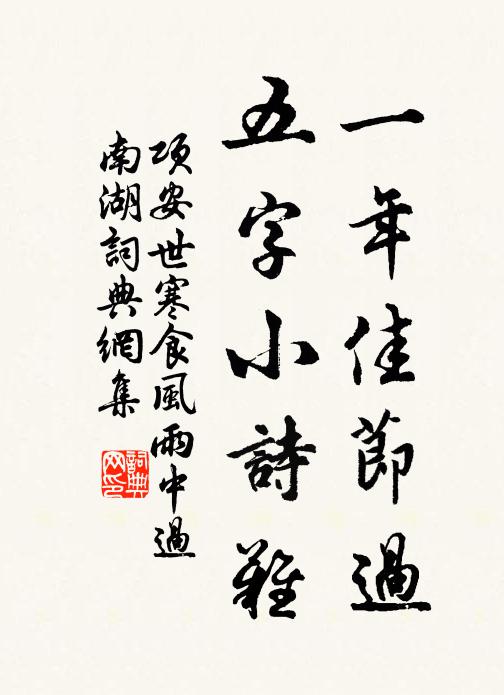 一年佳節過
五字小詩難
項安世寒食風雨中過
南湖詞典網集
詞典
网印